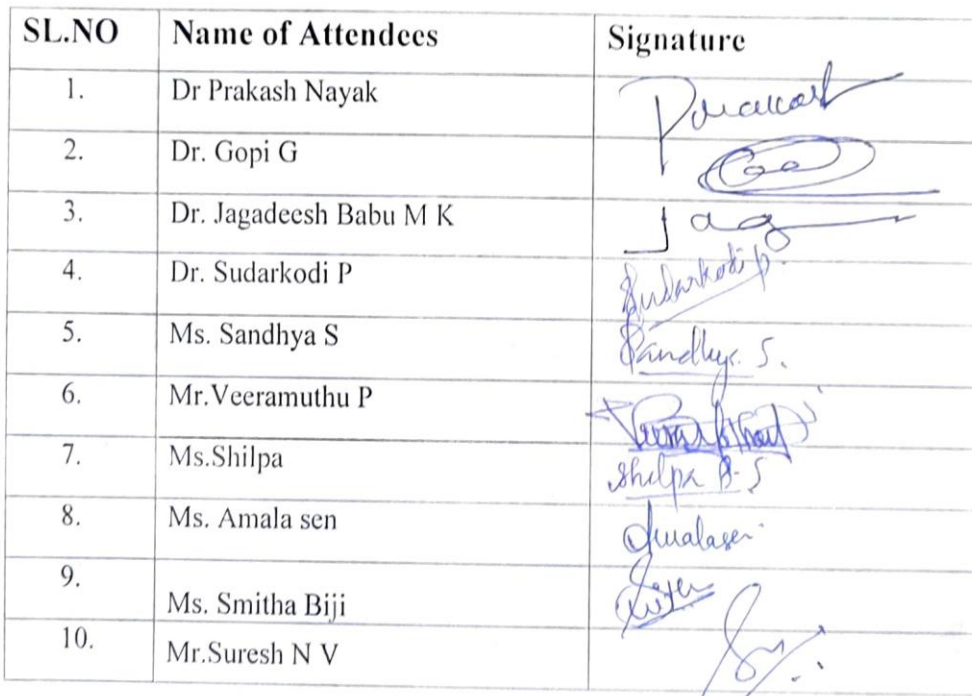 SL.NO Name of Attendees Signature
1. Dr Prakash Nayak Prakash
2. Dr. Gopi G
3. Dr. Jagadeesh Babu M K Jag
4. Dr. Sudarkodi P Sudarkodi P.
5. Ms. Sandhya S Sandhya. S.
6. Mr.Veeramuthu P
7. Ms.Shilpa Shilpa B.S
8. Ms. Amala sen Amalasen
9. Ms. Smitha Biji
10. Mr.Suresh N V